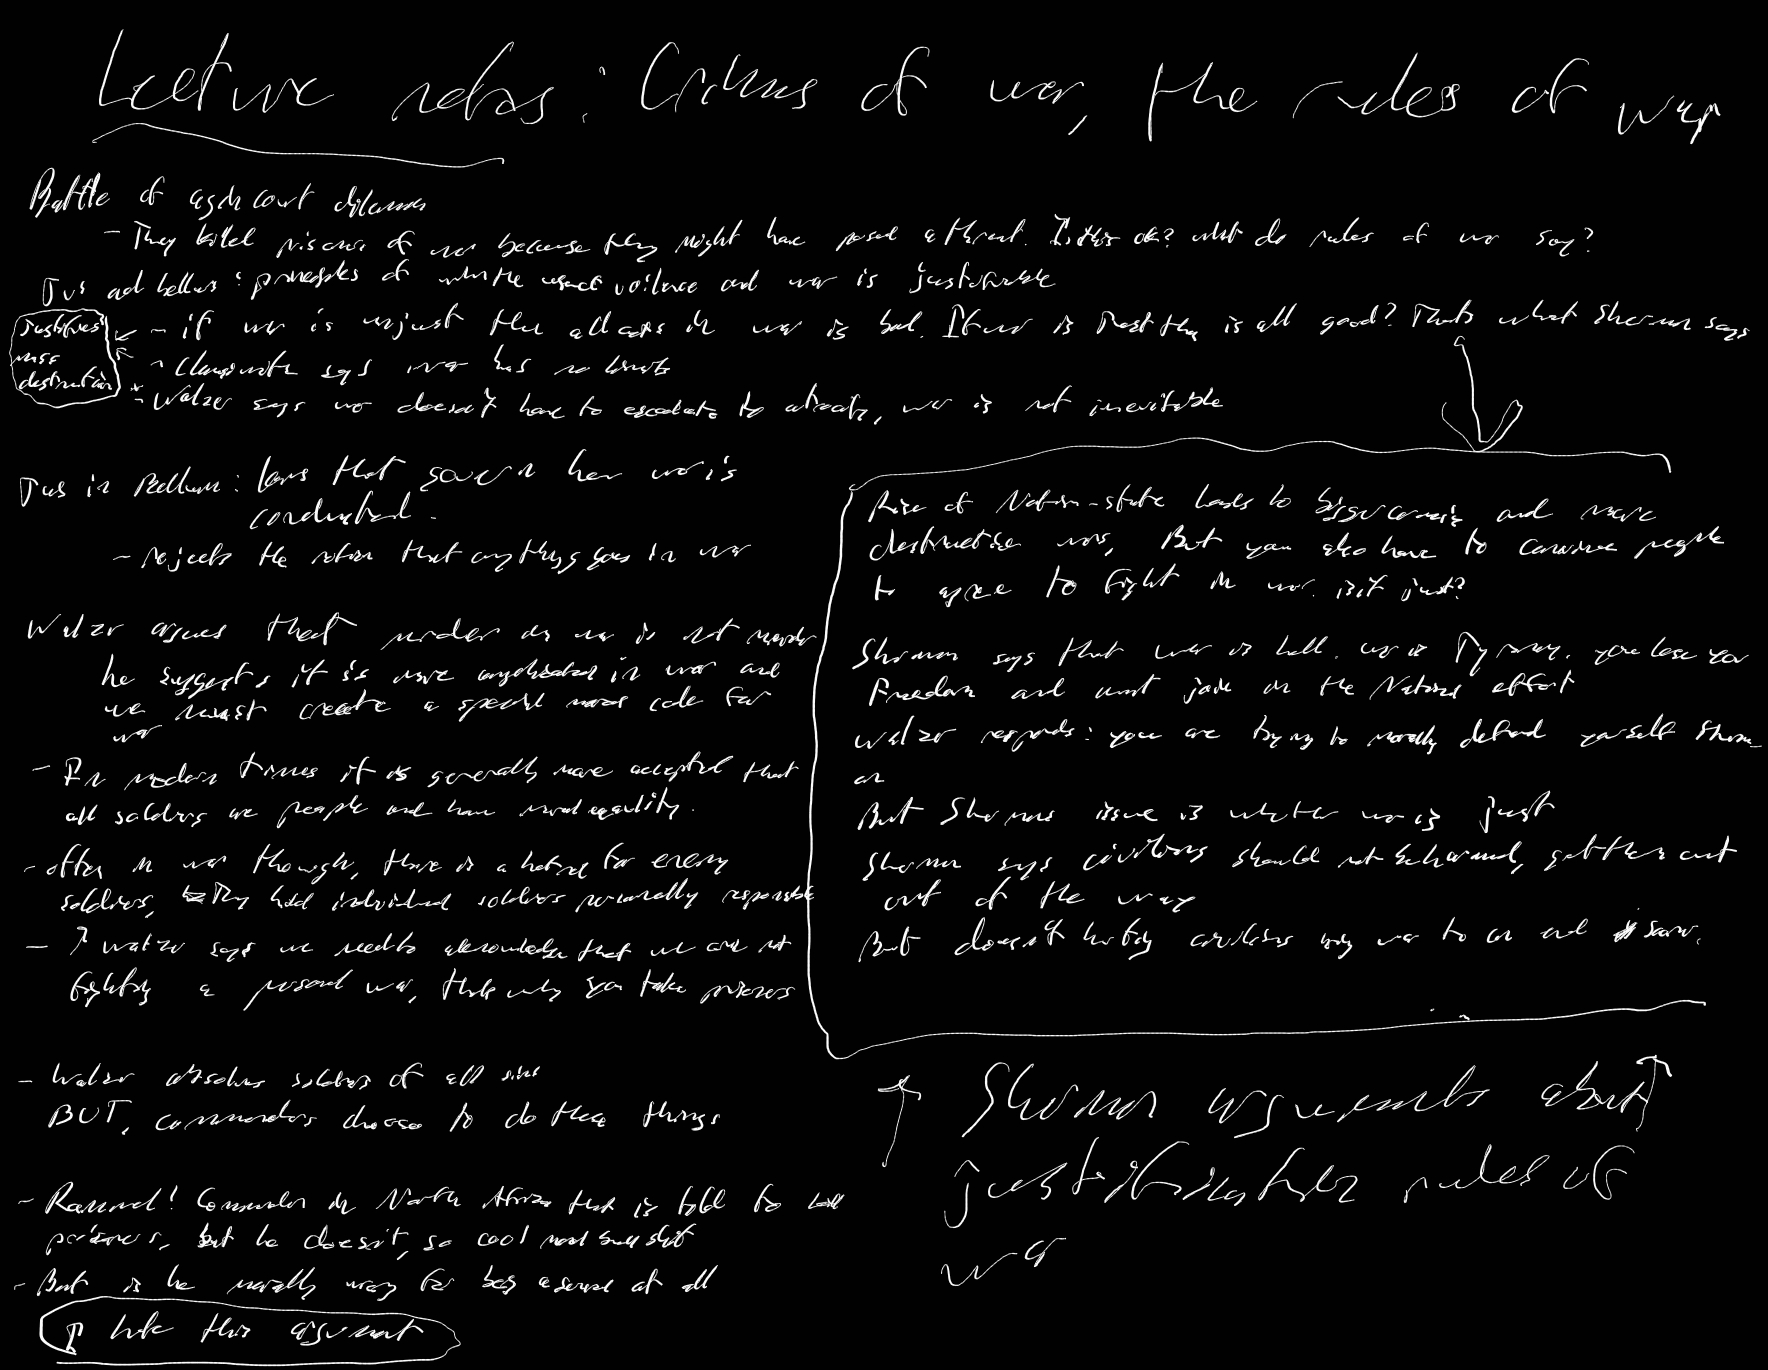 Lecture notes: Crimes of war, the rules of war
Battle of agincourt dilemma
- They killed prisoners of war because they might have posed a threat. Is this ok? what do rules of war say?
Jus ad bellum: principles of whether violence and war is justifiable
- if war is unjust then all acts in war is bad. If war is Just then is all good? Thats what Sherman says
- Clausewitz says war has no limits
- Walzer says war doesn't have to escalate to atrocity, war is not inevitable
Justifies
mass
destruction
Jus in Bellum: laws that govern how war is
conducted.
- rejects the notion that anything goes in war
Walzer argues that murder in war is not murder
he suggests it is more complicated in war and
we must create a special moral code for
war
- In modern times it is generally more accepted that
all soldiers are people and have moral equality.
- often in war though, there is a hatred for enemy
soldiers, They hold individual soldiers personally responsible
- ↑ Walzer says we need to acknowledge that we are not
fighting a personal war, thats why you take prisoners
- Walzer absolves soldiers of all sins
BUT, commanders choose to do these things
- Rommel! Commander in North Africa that is told to kill
prisoners, but he doesn't, so cool
- But is he morally wrong for being a at all
↑ hate this argument
Rise of Nation-state leads to bigger armies and more
destructive wars, But you also have to convince people
to agree to fight in war. is it just?
Sherman says that war is hell. war is Tyranny. you lose your
Freedom and must join in the National effort
Walzer responds: you are trying to morally defend yourself Sherm
an
But Shermans issue is whether war is just
Sherman says civilians should not be harmed, get them out
out of the way
But doesn't hurting civilians bring war to an end sooner.
↑ Sherman arguments about ↑
justification rules of
war